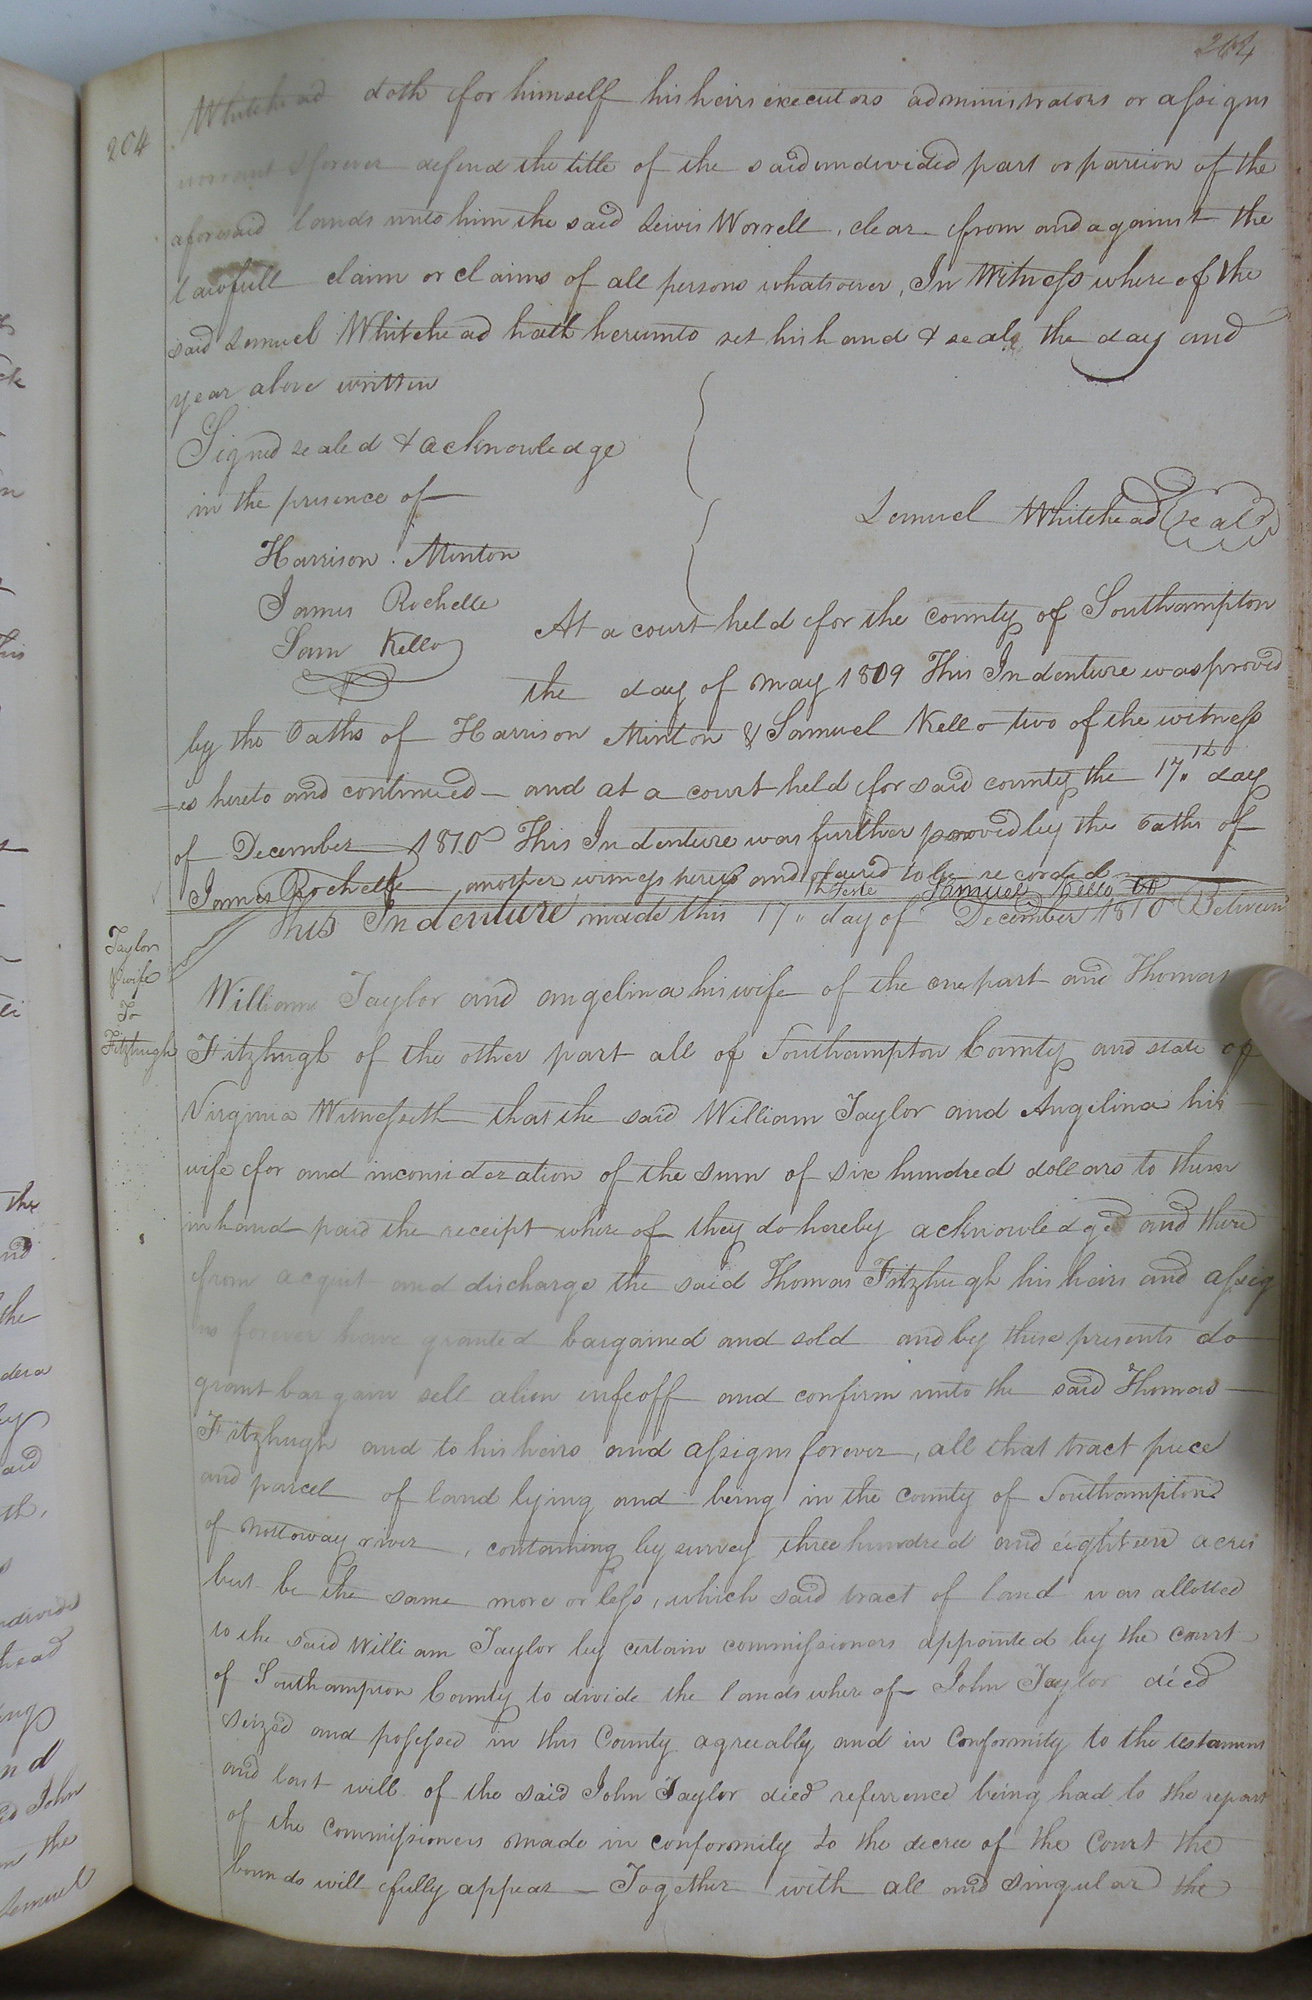 204
204
Whitehead doth for himself his heirs executors administrators or assigns
warrant & forever defend the title of the said undivided part or partion of the
aforesaid lands unto him the said Lewis Worrell, clear from and against the
lawfull claim or claims of all persons whatsoever, In Witness where of the
said Lemuel Whitehead hath herunto set his hand & seale the day and
year above written
Signed sealed & acknowledge
in the presence of
Lemuel Whitehead (Seal)
Harrison Minton
James Rochelle
Sam Kello
At a court held for the county of Southampton
the day of may 1809 This Indenture was proved
by the Oaths of Harrison Minton & Samuel Kello two of the witness
=es hereto and continued - and at a court held for said county the 17.th day
of December 1810 This Indenture was further proved by the oaths of
James Rochelle another witness hereto and ordered to be recorded
Teste Samuel Kello
Taylor
& wife
To
Fitzhugh
This Indenture made this 17th day of December 1810 Between
William Taylor and angelina his wife of the one part and Thomas
Fitzhugh of the other part all of Southampton County and state of
Virginia Witnesseth that the said William Taylor and Angelina his
wife for and in consideration of the sum of six hundred dollars to them
in hand paid the receipt where of they do hereby acknowledged and there
from acquit and discharge the said Thomas Fitzhugh his heirs and assig
ns forever have granted bargained and sold and by these presents do
grant bargain sell alien infeoff and confirm unto the said Thomas
Fitzhugh and to his heirs and assigns forever, all that tract piece
and parcel of land lying and being in the county of Southampton
of Nottoway river, containing by survey three hundred and eighteen acres
but be the same more or less, which said tract of land was allotted
to the said William Taylor by certain commissioners appointed by the court
of Southampton County to divide the lands where of John Taylor died
seized and possessed in this County agreeably and in Conformity to the testament
and last will of the said John Taylor died referrence being had to the report
of the commissioners made in conformity to the decree of the Court the
bounds will fully appear - Together with all and singular the